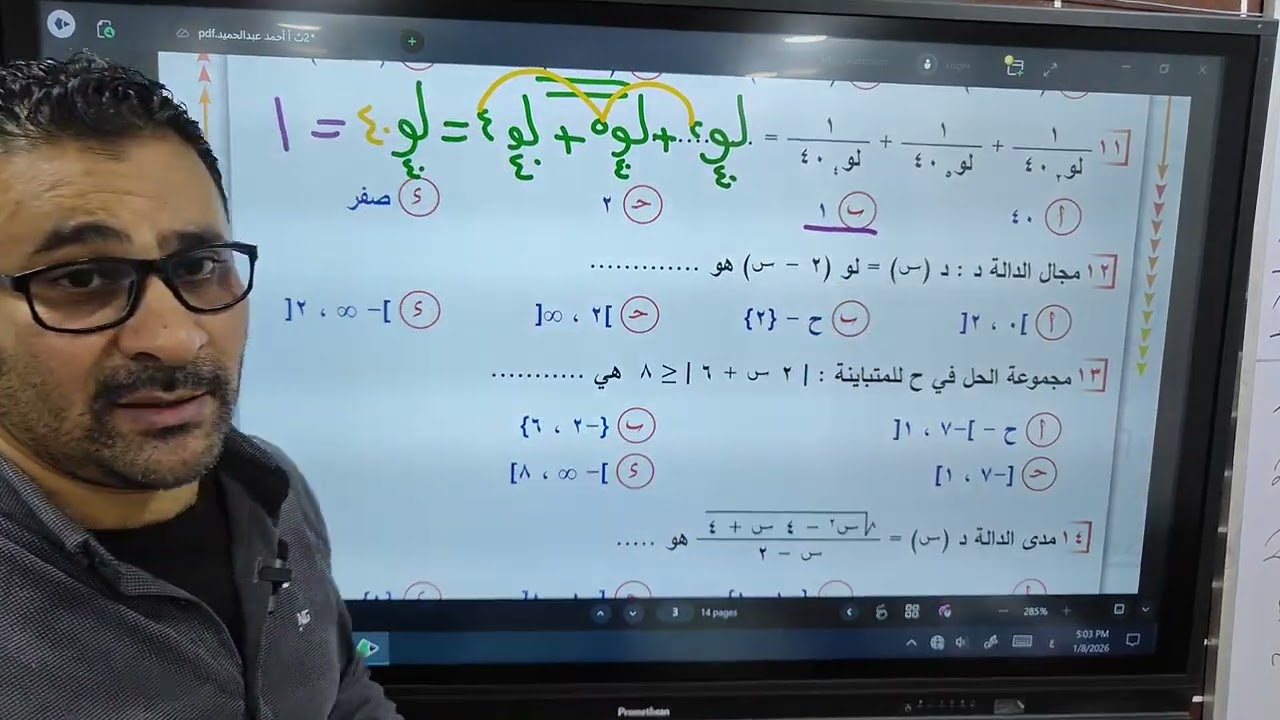 2ث أ أحمد عبدالحميد.pdf
١١ ١/لو٢ ٤٠ + ١/لو٥ ٤٠ + ١/لو٤ ٤٠ = ....
لو٤٠ ٢ + لو٤٠ ٥ + لو٤٠ ٤ = لو٤٠ ٤٠ = ١
أ ٤٠ ب ١ حـ ٢ ء صفر
١٢ مجال الدالة د : د (س) = لو (٢ – س) هو .............
أ ]٠ ، ٢[ ب ح – {٢} حـ ]٢ ، ∞[ ء ]– ∞ ، ٢[
١٣ مجموعة الحل في ح للمتباينة : | ٢ س + ٦ | ≥ ٨ هي ...........
أ ح – ]–٧ ، ١[ ب {–٢ ، ٦}
حـ [–٧ ، ١] ء ]– ∞ ، ٨]
١٤ مدى الدالة د (س) = √(س٢ – ٤ س + ٤) / س – ٢ هو .....
3 14 pages 285%
5:03 PM
1/8/2026
Promethean